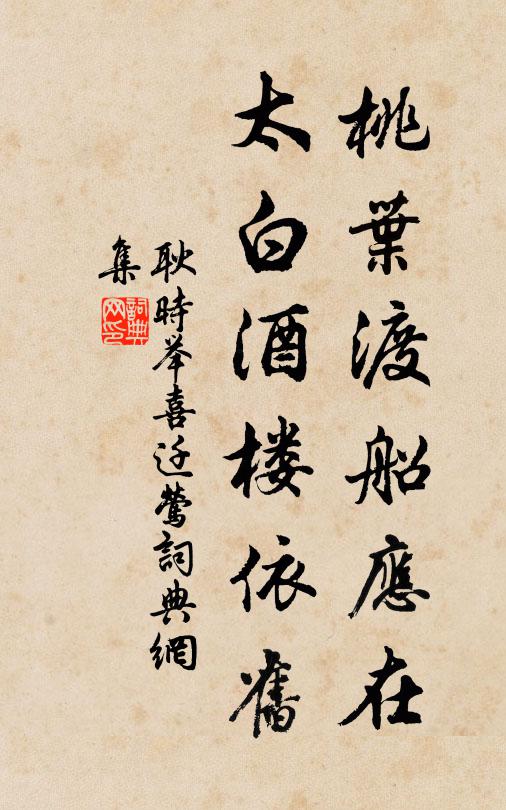 桃葉渡船應在
太白酒楼依舊
耿時举喜迁鶯詞典網
集
詞典网印